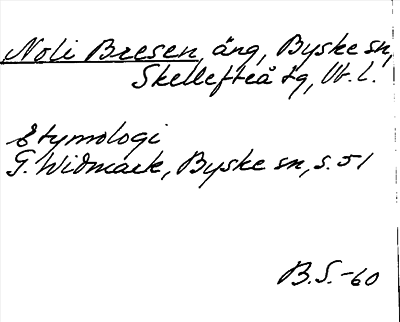 Noli Bresen, äng, Byske sn,
Skellefteå tg, Vb. l.
Etymologi
G. Widmark, Byske sn, s. 51
B.S.-60